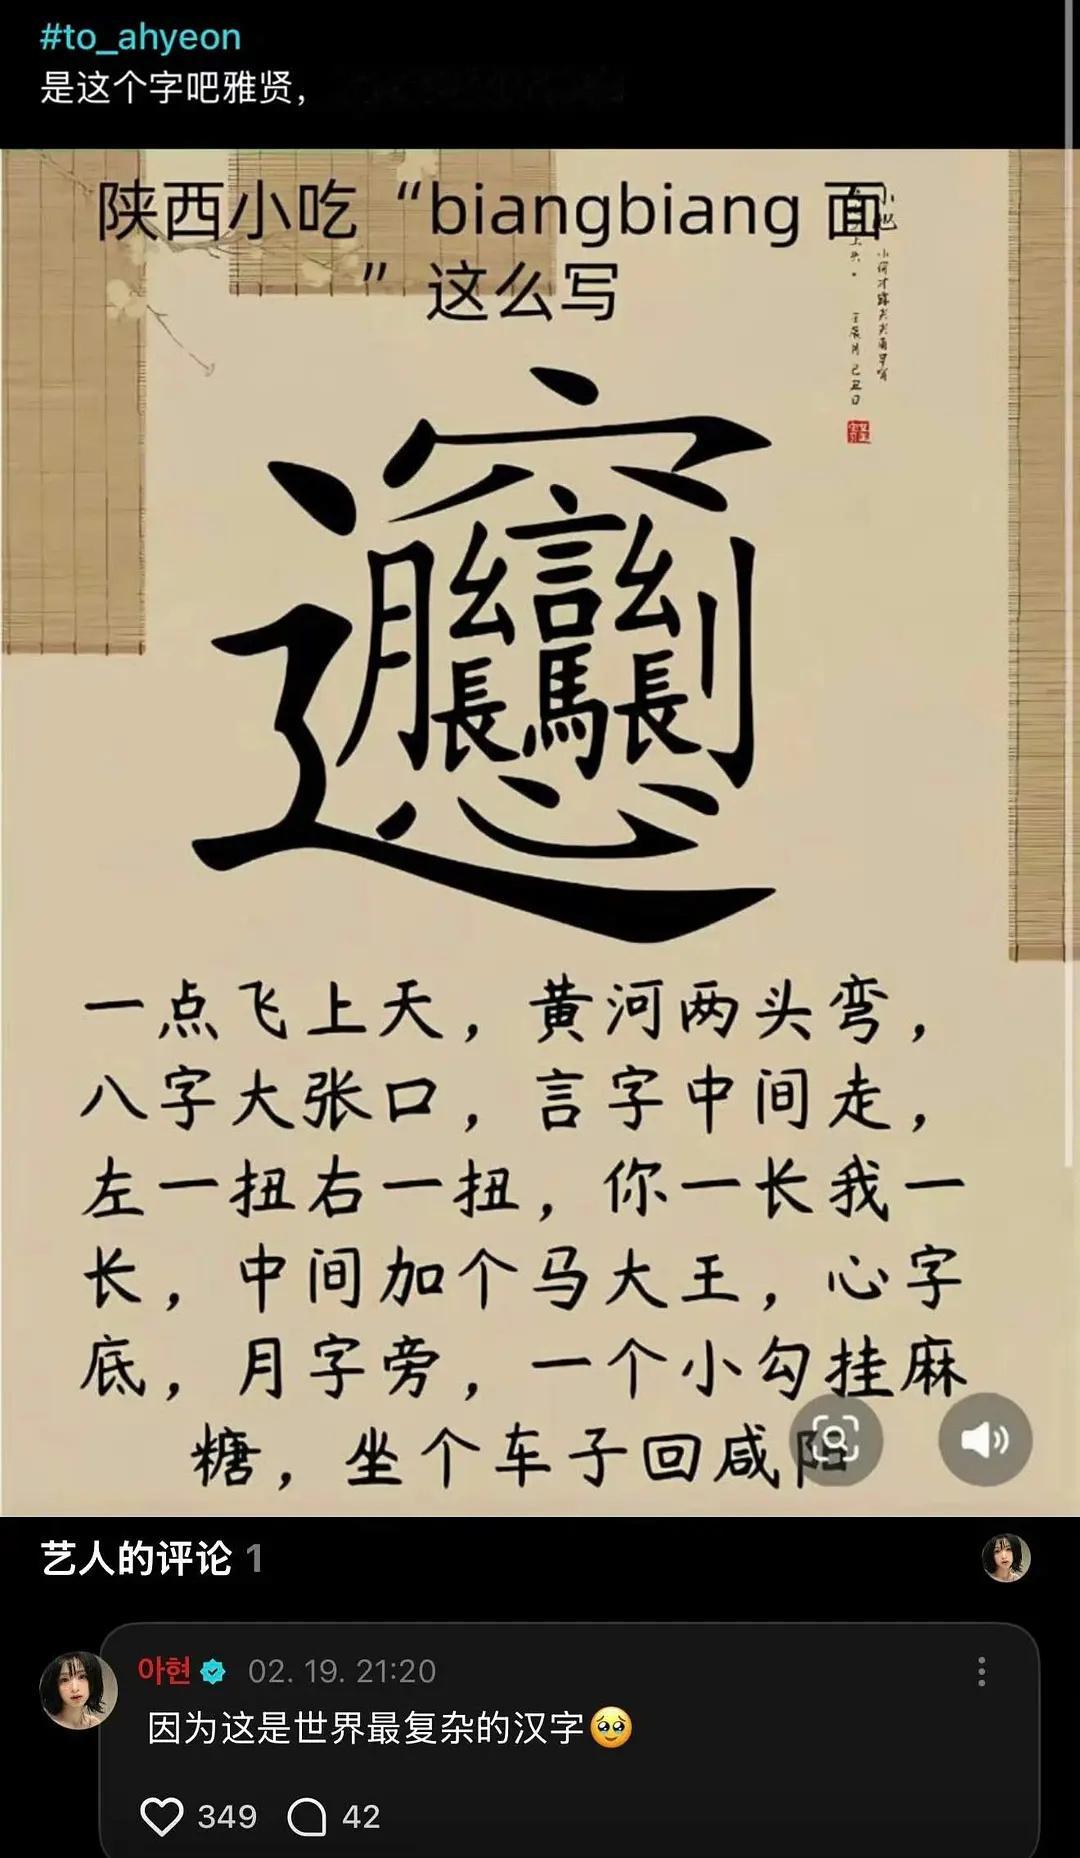 #to_ahyeon
是这个字吧雅贤，
陕西小吃“biangbiang 面
”这么写
一点飞上天，黄河两头弯，
八字大张口，言字中间走，
左一扭右一扭，你一长我一
长，中间加个马大王，心字
底，月字旁，一个小勾挂麻
糖，坐个车子回咸阳
艺人的评论 1
아현 02. 19. 21:20
因为这是世界最复杂的汉字🥹
349 42